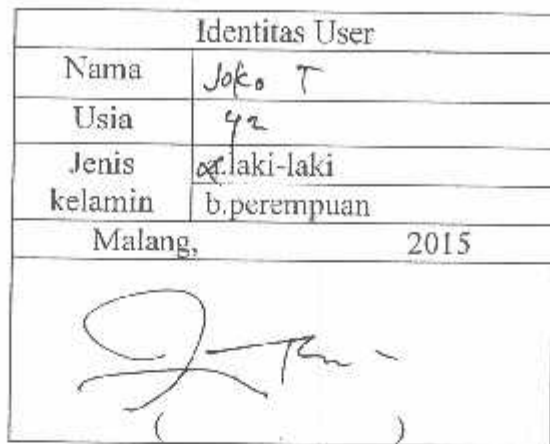 Identitas User
Nama Joko T
Usia 42
Jenis kelamin a.laki-laki
b.perempuan
Malang, 2015
( )